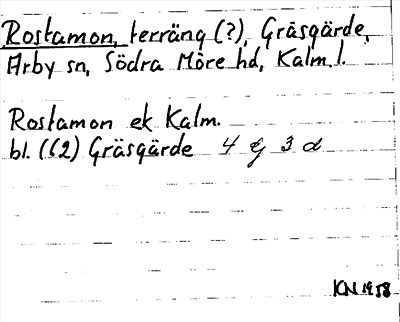 Rostamon, terräng (?), Gräsgärde,
Arby sn, Södra Möre hd, Kalm. l.
Rostamon ek Kalm.
bl. ((2) Gräsgärde 4 g 3 d
KN 1958